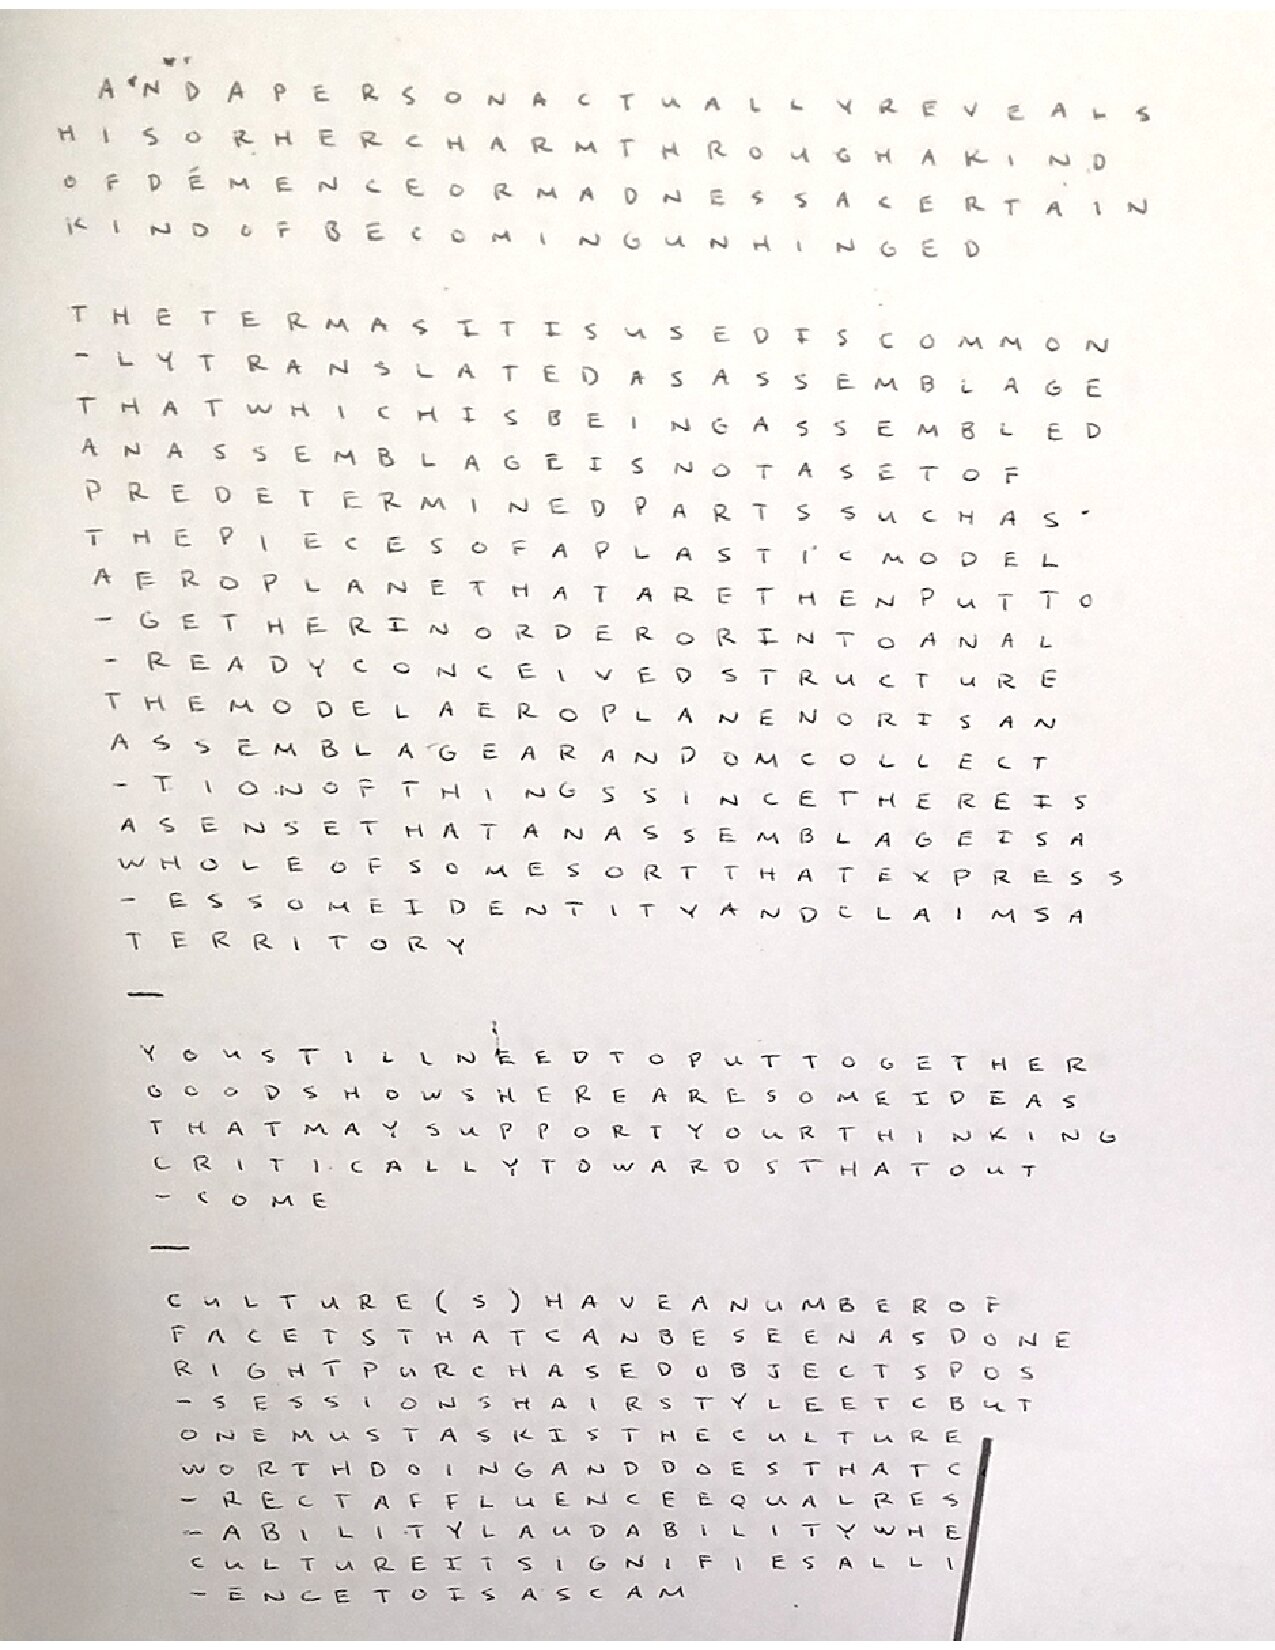 ANDAPERSONACTUALLYREVEALS
HISORHERCHARMTHROUGHAKIND
OFDÉMENCEORMADNESSACERTAIN
KINDOFBECOMINGUNHINGED
THETERMASITISUSEDISCOMMON
-LYTRANSLATEDASASSEMBLAGE
THATWHICHISBEINGASSEMBLED
ANASSEMBLAGEISNOTASETOF
PREDETERMINEDPARTSSUCHAS
THEPIECESOFAPLASTICMODEL
AEROPLANETHATARETHENPUTTO
-GETHERINORDERORINTOANAL
-READYCONCEIVEDSTRUCTURE
THEMODELAEROPLANENORISAN
ASSEMBLAGEARANDOMCOLLECT
-TIONOFTHINGSSINCETHEREIS
ASENSETHATANASSEMBLAGEISA
WHOLEOFSOMESORTTHATEXPRESS
-ESSOMEIDENTITYANDCLAIMSA
TERRITORY
—
YOUSTILLNEEDTOPUTTOGETHER
GOODSHOWSHEREARESOMEIDEAS
THATMAYSUPPORTYOURTHINKING
CRITICALLYTOWARDSTHATOUT
-COME
—
CULTURE(S)HAVEANUMBEROF
FACETSTHATCANBESEENASDONE
RIGHTPURCHASEDOBJECTSPOS
-SESSIONSHAIRSTYLEETCBUT
ONEMUSTASKISTHECULTURE
WORTHDOINGANDDOESTHATC
-RECTAFFLUENCEEQUALRES
-ABILITYLAUDABILITYWHE
CULTUREITSIGNIFIESALLI
-ENCETOISASCAM